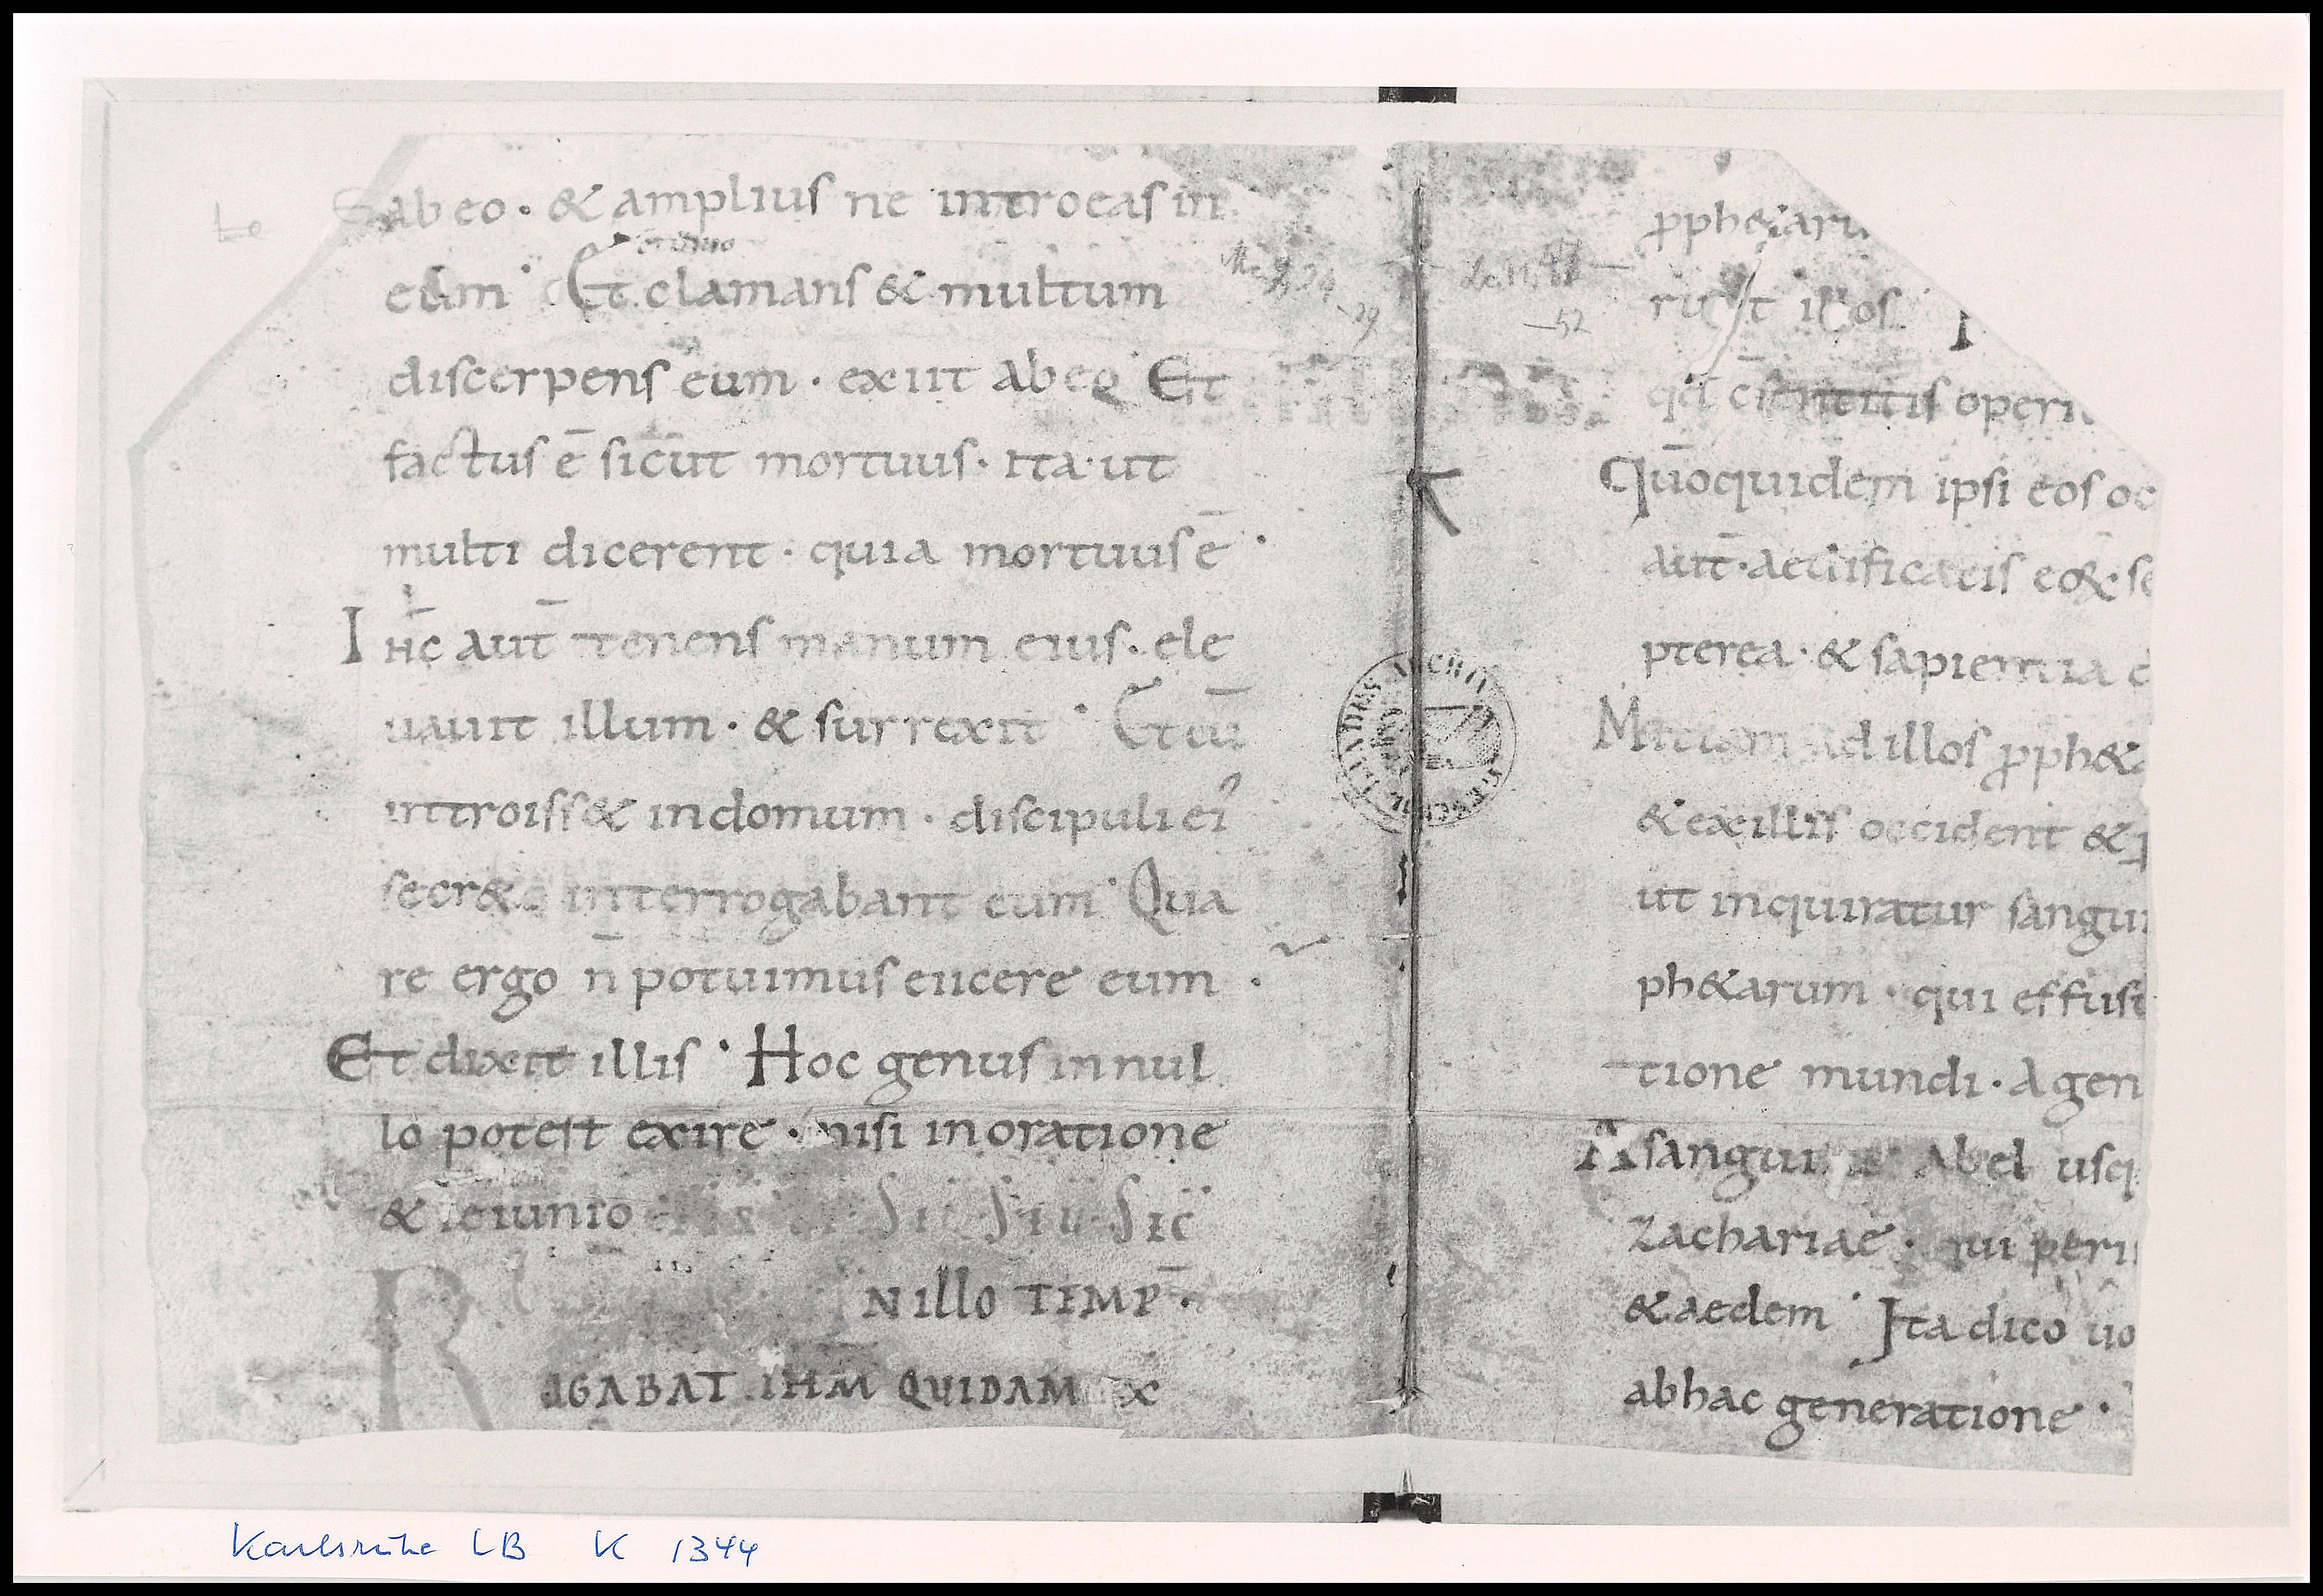 ab eo · & amplius ne introeas in
eum · Et clamans & multum
discerpens eum · exiit ab eo Et
factus ē sicut mortuus · ita · ut
multi dicerent · quia mortuus ē ·
Ihc aut̄ tenens manum eius · ele
uauit illum · & surrexit · Et cū
introiss& in domum · discipuli ei᾽
secr& interrogabant eum · Qua
re ergo n̄ potuimus eiicere eum ·
Et dixit illis · Hoc genus in nul
lo potest exire · nisi in oratione
& ieiunio
N illo TEMP̄ ·
R
OGABAT IHM QUIDAM
pph&aru
runt illos
qd c̄sentitis operi
Qūo quidem ipsi eos oc
aut̄ · aedificatis eoꝝ · se
pterea · & sapientia d
Mittam ad illos pph&
& ex illis occident & p
ut inquiratur sangui
ph&arum · qui effusu
tione mundi · A gen
A sanguine Abel usq
Zachariae · qui peri
& aedem · Ita dico uo
ab hac generatione ·
Karlsruhe LB K 1344